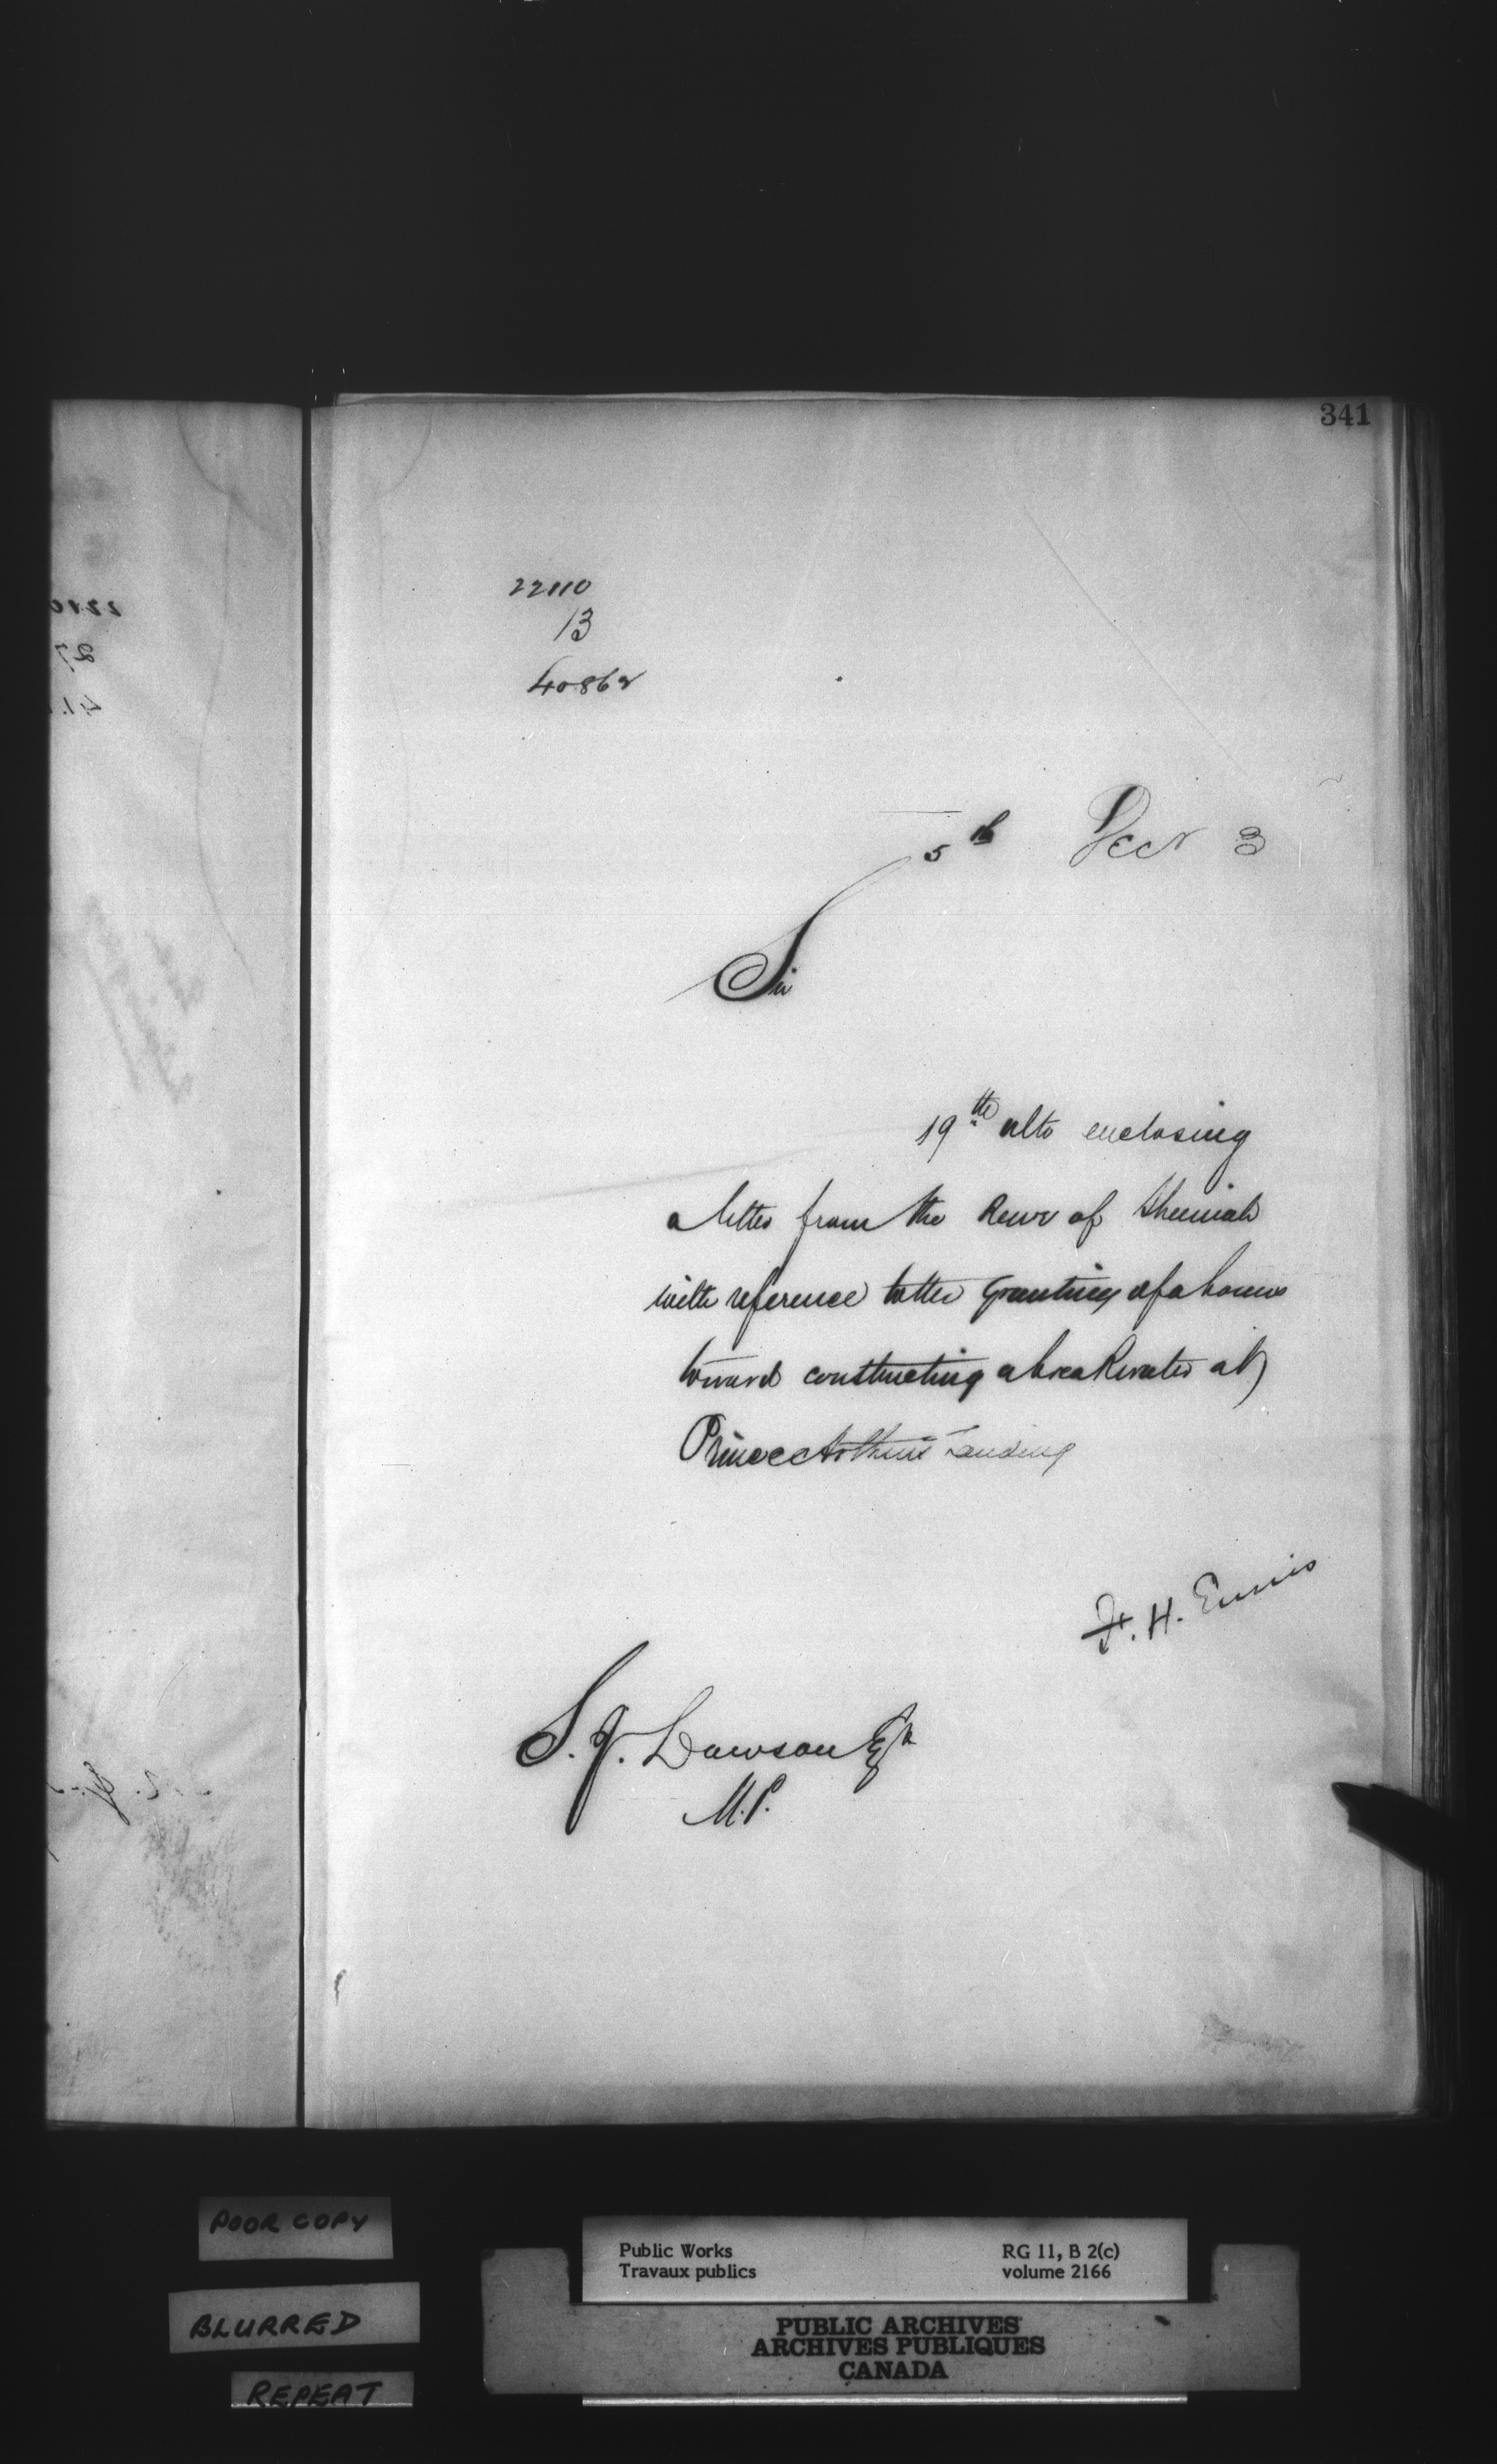 341
22110
13
40862
5th Decr 3
Sir
19th ulto enclosing
a letter from the Reeve of Shuniah
with reference to the granting of a bonus
toward constructing a breakwater at
Prince Arthur's Landing
F. H. Ennis
S. J. Dawson Esq
M.P.
POOR COPY
BLURRED
REPEAT
Public Works RG 11, B 2(c)
Travaux publics volume 2166
PUBLIC ARCHIVES
ARCHIVES PUBLIQUES
CANADA